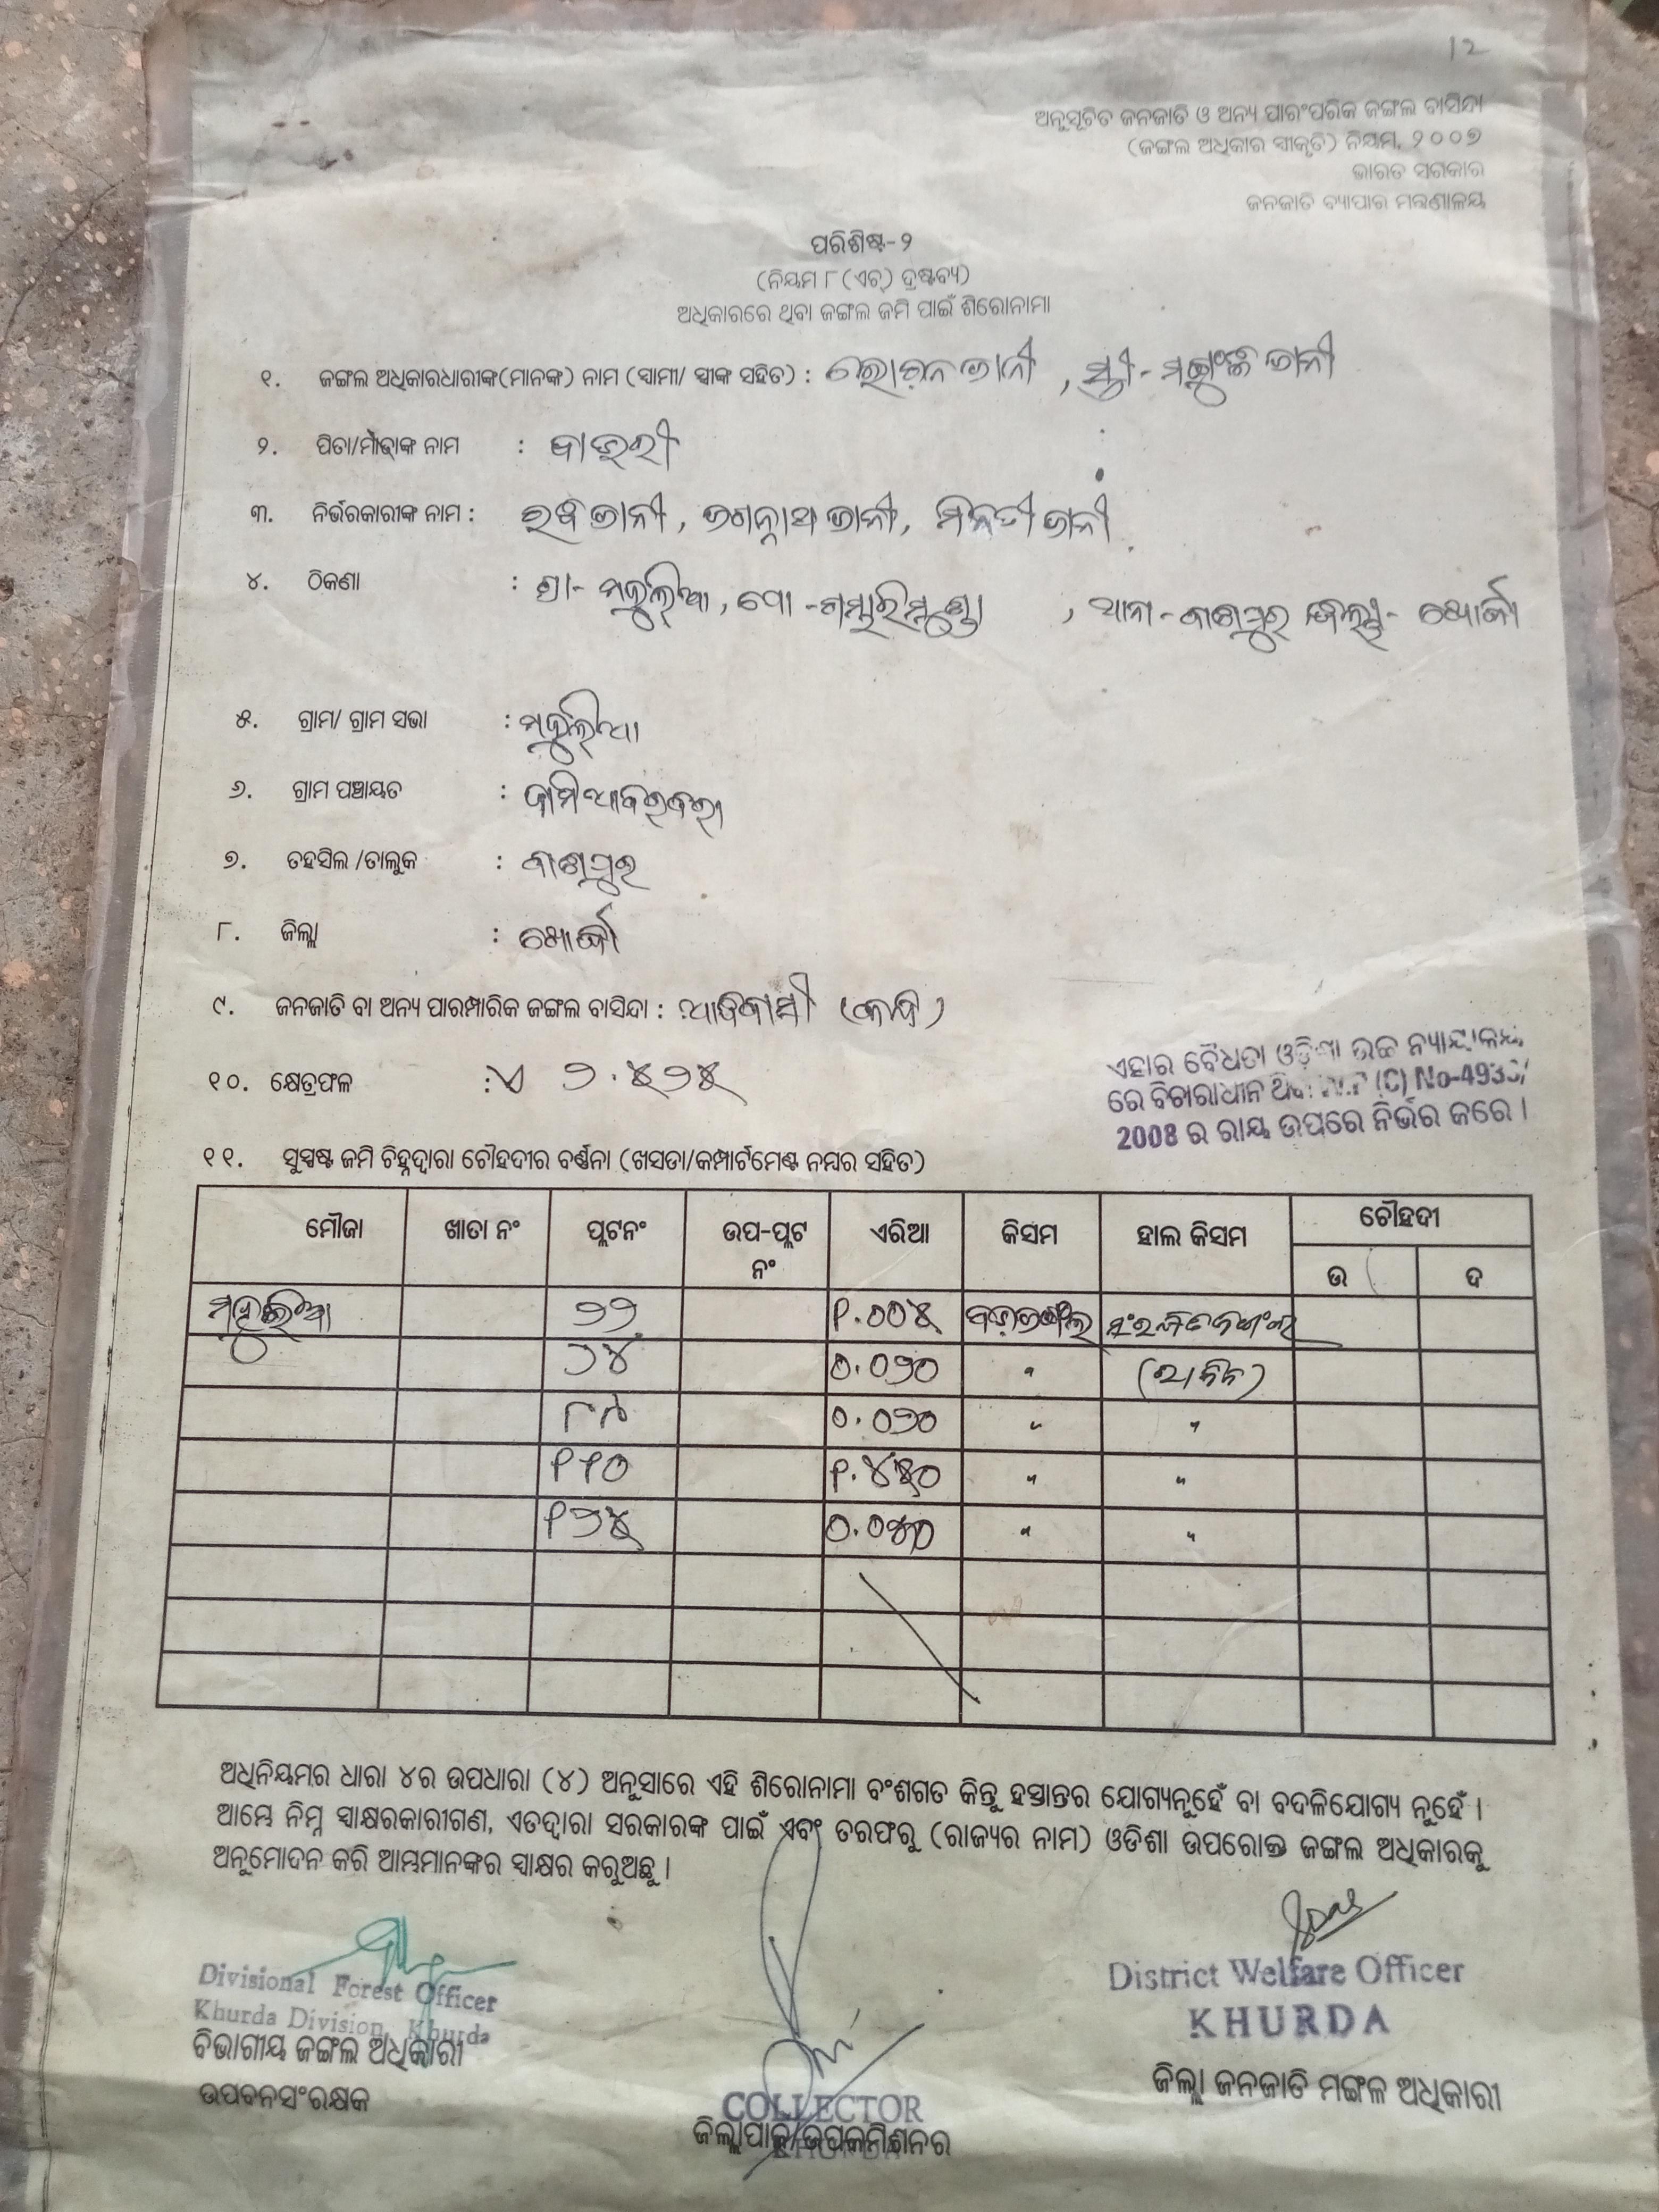 12
ଅନୁସୂଚିତ ଜନଜାତି ଓ ଅନ୍ୟ ପାରଂପରିକ ଜଙ୍ଗଲ ବାସିନ୍ଦା
(ଜଙ୍ଗଲ ଅଧିକାର ସ୍ୱୀକୃତି) ନିୟମ, ୨୦୦୭
ଭାରତ ସରକାର
ଜନଜାତି ବ୍ୟାପାର ମନ୍ତ୍ରଣାଳୟ
ପରିଶିଷ୍ଟ-୨
(ନିୟମ ୮ (ଏଚ୍) ଦ୍ରଷ୍ଟବ୍ୟ)
ଅଧିକାରରେ ଥିବା ଜଙ୍ଗଲ ଜମି ପାଇଁ ଶିରୋନାମା
୧. ଜଙ୍ଗଲ ଅଧିକାରଧାରୀଙ୍କ(ମାନଙ୍କ) ନାମ (ସ୍ୱାମୀ/ ସ୍ତ୍ରୀଙ୍କ ସହିତ) : ଜାନୀ , ସ୍ତ୍ରୀ - ଜାନୀ
୨. ପିତା/ମାତାଙ୍କ ନାମ :
୩. ନିର୍ଭରକାରୀଙ୍କ ନାମ : ରବି ଜାନୀ , ଜଗନ୍ନାଥ ଜାନୀ, ମିନତୀ ଜାନୀ
୪. ଠିକଣା : ଗ୍ରା- ମହୁଲିଆ , ପୋ - ଗମ୍ଭାରିମୁଣ୍ଡା , ଥାନା - ବାଣପୁର ଜିଲ୍ଲା - ଖୋର୍ଦ୍ଧା
୫. ଗ୍ରାମ/ ଗ୍ରାମ ସଭା : ମହୁଲିଆ
୬. ଗ୍ରାମ ପଞ୍ଚାୟତ :
୭. ତହସିଲ /ତାଲୁକ : ବାଣପୁର
୮. ଜିଲ୍ଲା : ଖୋର୍ଦ୍ଧା
୯. ଜନଜାତି ବା ଅନ୍ୟ ପାରମ୍ପାରିକ ଜଙ୍ଗଲ ବାସିନ୍ଦା : ଆଦିବାସୀ (କନ୍ଧ)
୧୦. କ୍ଷେତ୍ରଫଳ : ଏ ୨.୫୨୫
ଏହାର ବୈଧତା ଓଡ଼ିଶା ଉଚ୍ଚ ନ୍ୟାୟାଳୟ
ରେ ବିଚାରାଧୀନ (C) No-4933/
2008 ର ରାୟ ଉପରେ ନିର୍ଭର କରେ ।
୧୧. ସୁସ୍ପଷ୍ଟ ଜମି ଚିହ୍ନଦ୍ୱାରା ଚୌହଦୀର ବର୍ଣ୍ଣନା (ଖସଡା/କମ୍ପାର୍ଟମେଣ୍ଟ ନମ୍ବର ସହିତ)
ମୌଜା ଖାତା ନଂ ପ୍ଲଟନଂ ଉପ-ପ୍ଲଟ ନଂ ଏରିଆ କିସମ ହାଲ କିସମ ଚୌହଦୀ
ଉ ଦ
ମହୁଲିଆ ୨୨ ୧.୦୦୫ ବଡ଼ଜଙ୍ଗଲ
୨୪ ୦.୦୨୦ "
୮୯ ୦.୦୨୦ " "
୧୧୦ " "
୧୨୫ " "
ଅଧିନିୟମର ଧାରା ୪ର ଉପଧାରା (୪) ଅନୁସାରେ ଏହି ଶିରୋନାମା ବଂଶଗତ କିନ୍ତୁ ହସ୍ତାନ୍ତର ଯୋଗ୍ୟନୁହେଁ ବା ବଦଳିଯୋଗ୍ୟ ନୁହେଁ ।
ଆମ୍ଭେ ନିମ୍ନ ସ୍ୱାକ୍ଷରକାରୀଗଣ, ଏତଦ୍ଦ୍ୱାରା ସରକାରଙ୍କ ପାଇଁ ଏବଂ ତରଫରୁ (ରାଜ୍ୟର ନାମ) ଓଡିଶା ଉପରୋକ୍ତ ଜଙ୍ଗଲ ଅଧିକାରକୁ
ଅନୁମୋଦନ କରି ଆମ୍ଭମାନଙ୍କର ସ୍ୱାକ୍ଷର କରୁଅଛୁ ।
Divisional Forest Officer
Khurda Division, Khurda
ବିଭାଗୀୟ ଜଙ୍ଗଲ ଅଧିକାରୀ
ଉପବନସଂରକ୍ଷକ
COLLECTOR
ଜିଲ୍ଲାପାଳ/ଉପକମିଶନର
District Welfare Officer
KHURDA
ଜିଲ୍ଲା ଜନଜାତି ମଙ୍ଗଳ ଅଧିକାରୀ